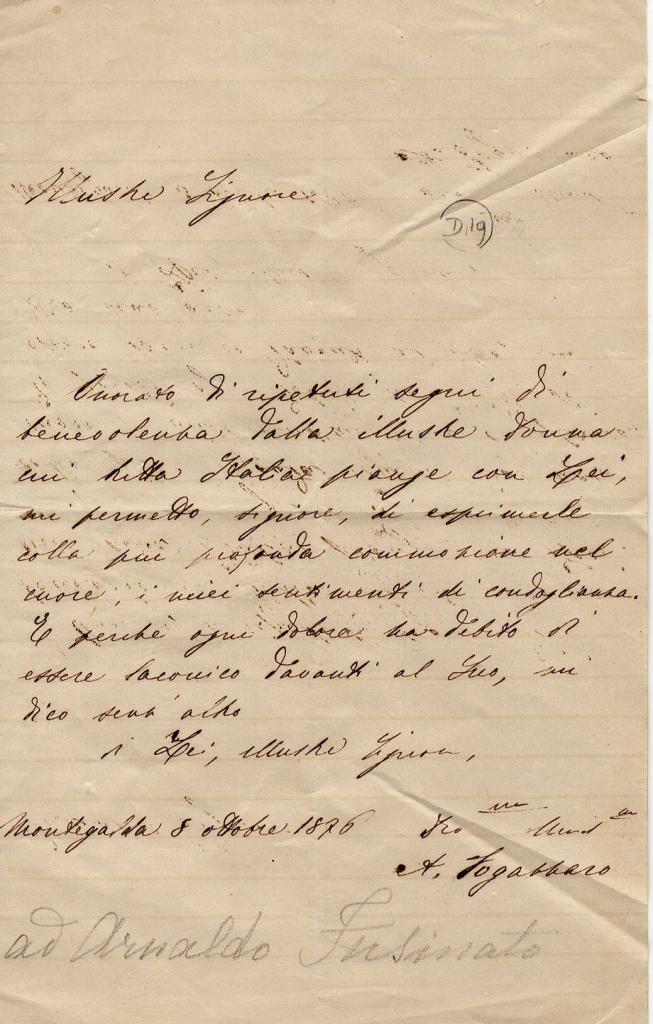 Illustre Signore
D/19
Onorato di ripetuti segni di
benevolenza dalla illustre donna
cui tutta Italia piange con Lei,
mi permetto, signore, di esprimerle
colla più profonda commozione nel
cuore, i miei sentimenti di condoglianza.
E perchè ogni dolore ha debito di
essere laconico davanti al Suo, mi
dico senz'altro
di Lei, illustre Signore,
Montegalda 8 ottobre 1876
A. Fogazzaro
ad Arnaldo Fusinato